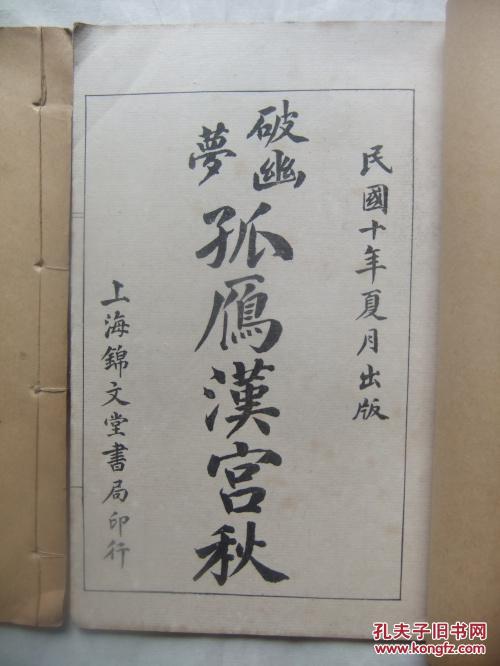 民國十年夏月出版
破幽
夢
孤鴈漢宮秋
上海錦文堂書局印行
孔夫子旧书网
www.kongfz.com